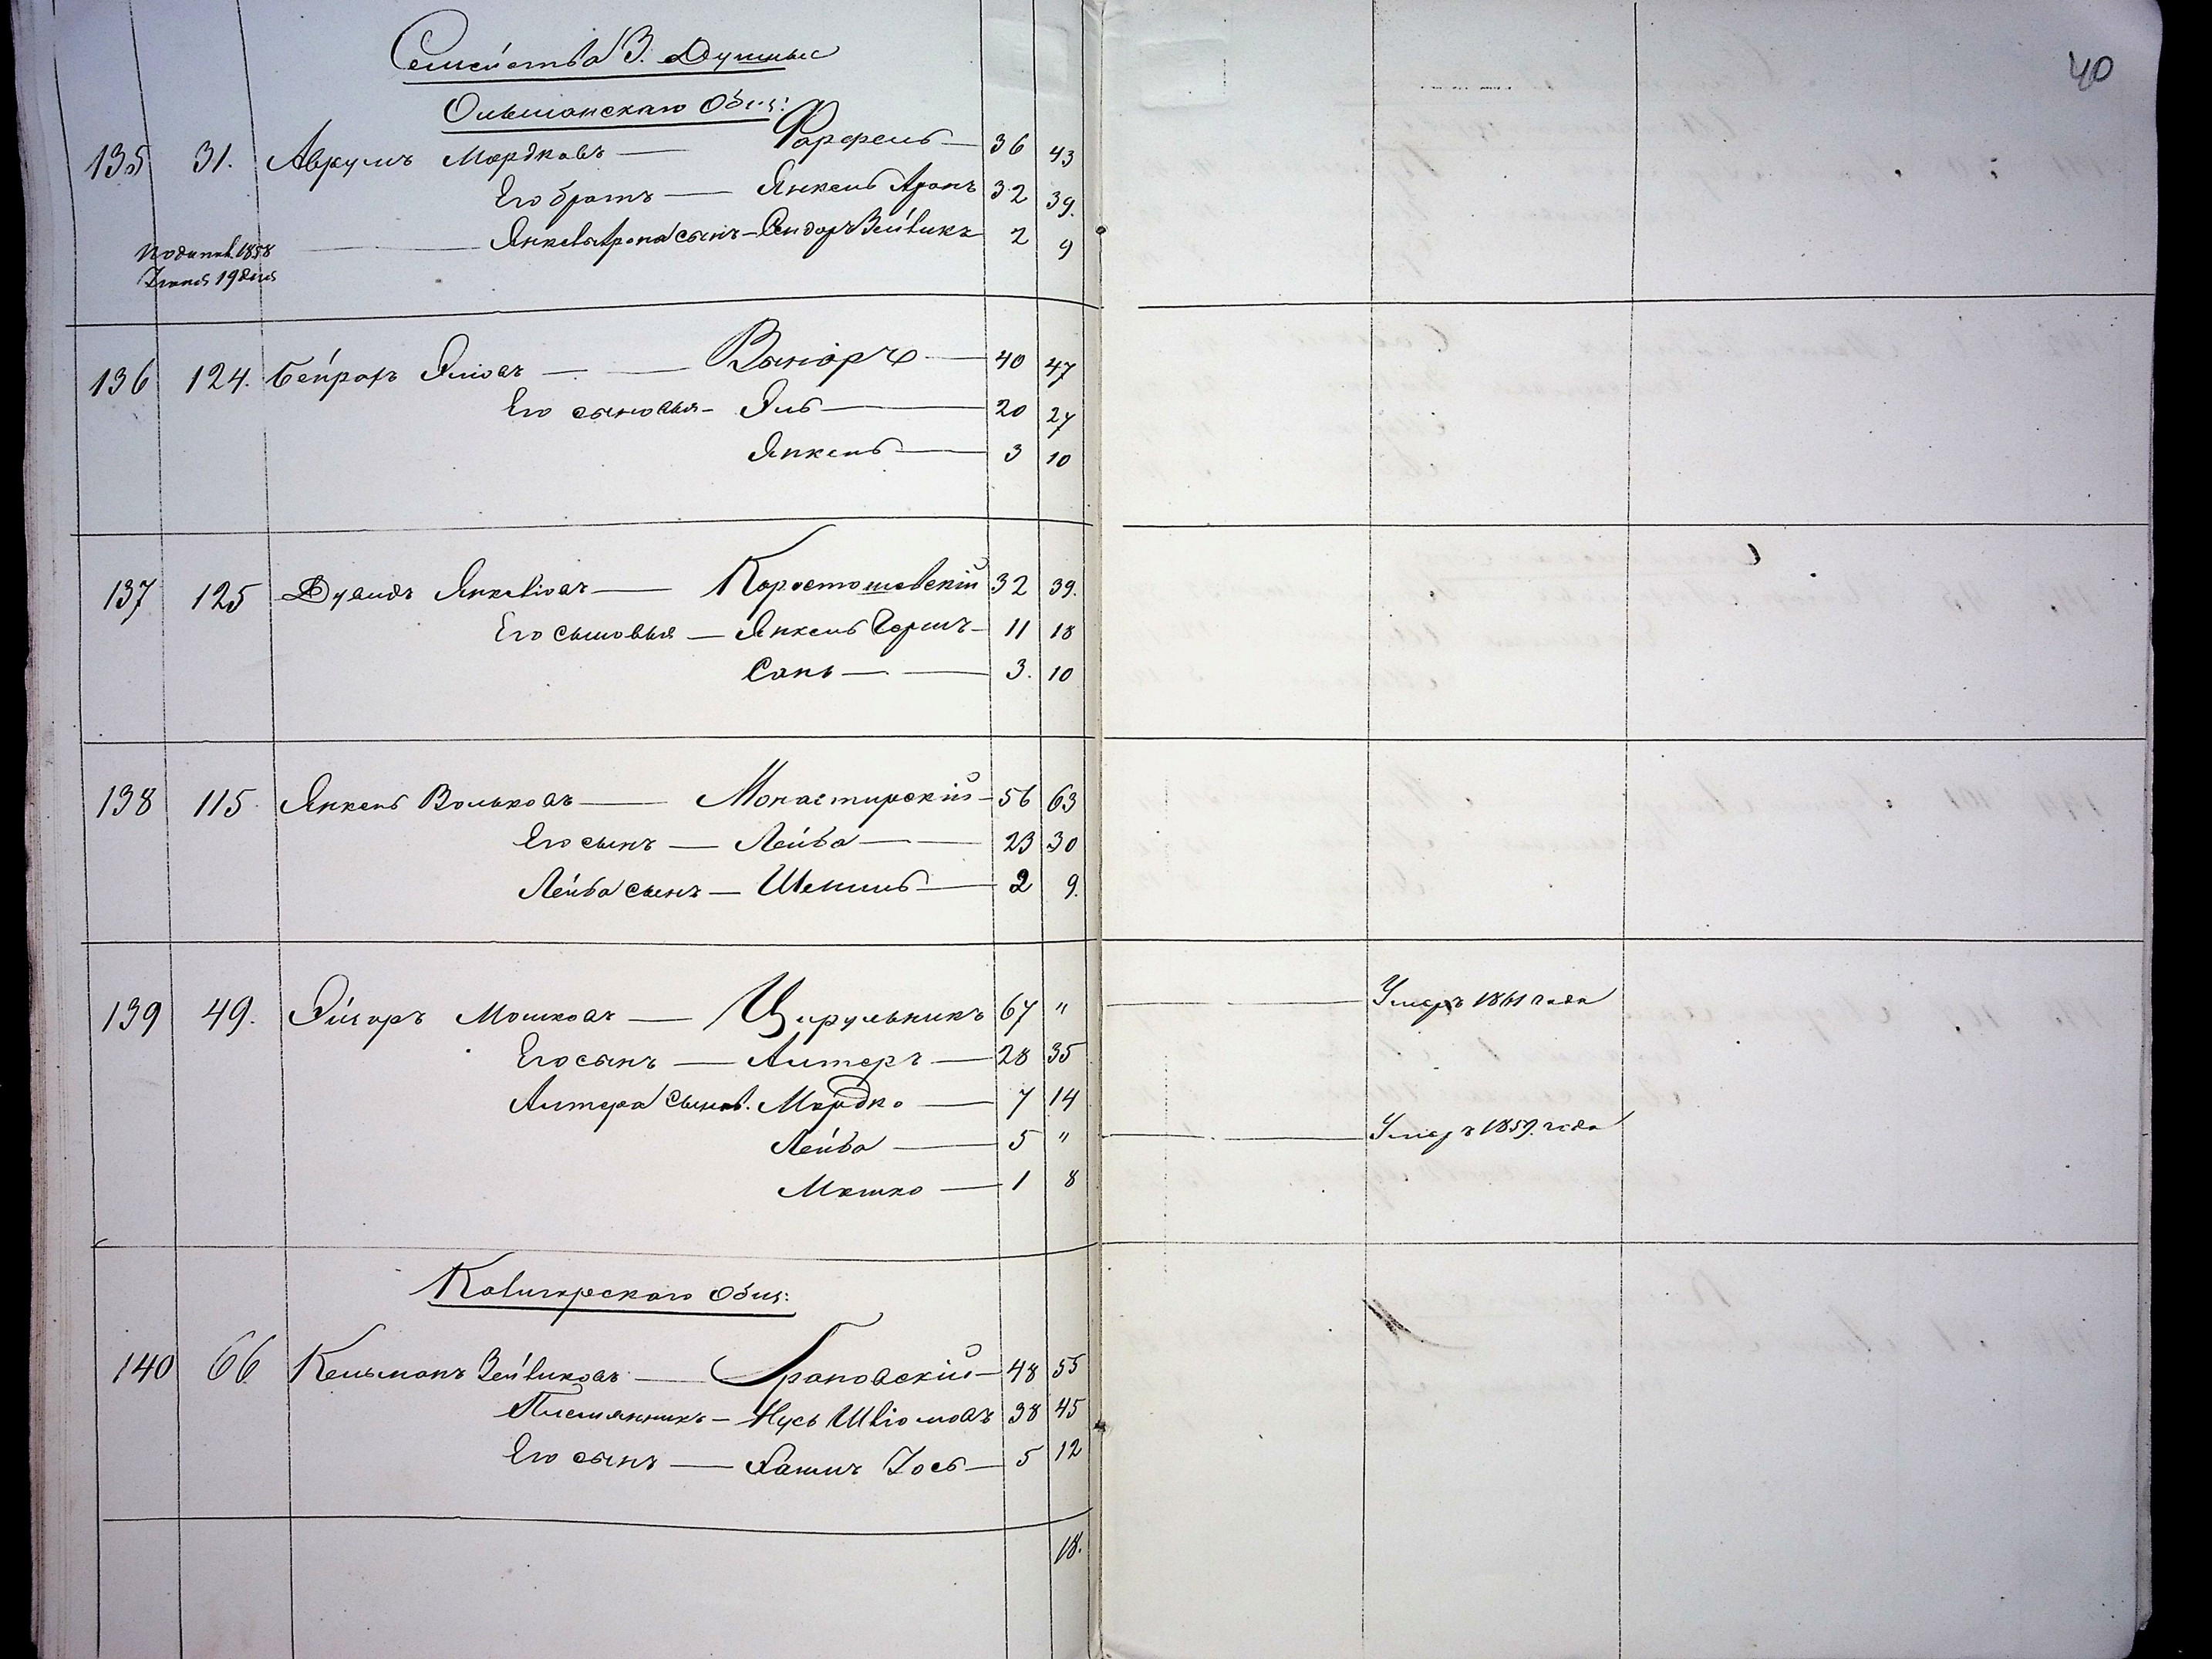 40
Семейства 3. Душныя
Ольшанскаго Общ:
135 31. Аврумъ Мордковъ — Фарфель — 36 43
Его братъ — Янкель Аронъ 32 39.
Янкель Арона сынъ — Сендоръ Зейвикъ 2 9
1858
19
136 124. Бейрахъ Элiовъ — Винiоръ — 40 47
Его сыновья — Эль — 20 27
Янкель — 3 10
137 125 Дувидъ Янкелiовъ — Коростошевскiй 32 39.
Его сыновья — Янкель Гершъ — 11 18
Сань — 3. 10
138 115 Янкель Вольковъ — Монастирскiй — 56 63
Его сынъ — Лейба — 23 30
Лейба сынъ — Шепшель — 2 9.
139 49. Эйзоръ Мошковъ — Цирульникъ 67 " — Умеръ 1861 года
Его сынъ — Алтеръ — 28 35
Алтера сынов. Мордко — 7 14
Лейба — 5 " — Умеръ 1859. года
Мошко — 1 8
Кавигорскаго Общ:
140 66 Кельманъ Зейвиковъ — Грановскiй — 48 55
Племянникъ — Нусь Шлiомовъ 38 45
Его сынъ — Iось — 5 12
18.